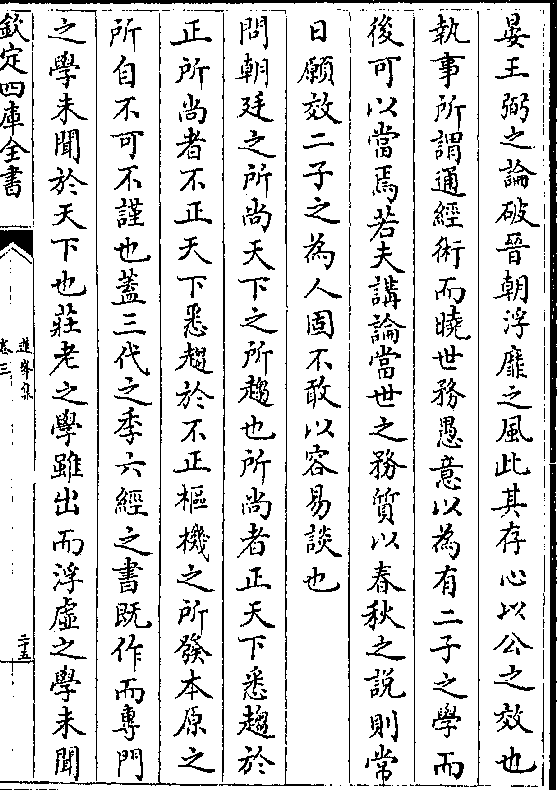 晏王弼之論破晉朝浮靡之風此其存心以公之效也
執事所謂通經術而曉世務愚意以為有二子之學而
後可以當焉若夫講論當世之務質以春秋之說則常
日願效二子之為人固不敢以容易談也
問朝廷之所尚天下之所趨也所尚者正天下悉趨於
正所尚者不正天下悉趨於不正樞機之所發本原之
所自不可不謹也蓋三代之季六經之書既作而專門
之學未聞於天下也莊老之學雖出而浮虛之學未聞
欽定四庫全書
卷三
二十五